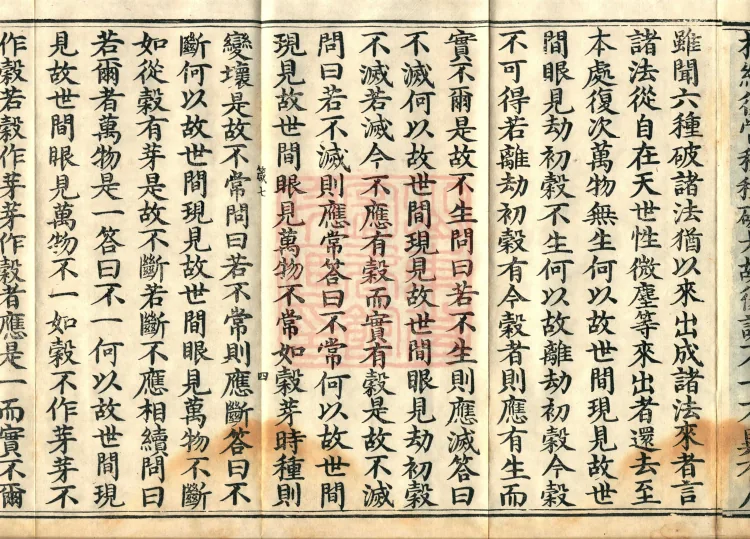 雖聞六種破諸法猶以來出成諸法來者言
諸法從自在天世性微塵等來出者還去至
本處復次萬物無生何以故世間現見故世
間眼見劫初穀不生何以故離劫初穀今穀
不可得若離劫初穀有今穀者則應有生而
實不爾是故不生問曰若不生則應滅答曰
不滅何以故世間現見故世間眼見劫初穀
不滅若滅今不應有穀而實有穀是故不滅
問曰若不滅則應常答曰不常何以故世間
現見故世間眼見萬物不常如穀芽時種則
七 四
變壞是故不常問曰若不常則應斷答曰不
斷何以故世間現見故世間眼見萬物不斷
如從穀有芽是故不斷若斷不應相續問曰
若爾者萬物是一答曰不一何以故世間現
見故世間眼見萬物不一如穀不作芽芽不
作穀若穀作芽芽作穀者應是一而實不爾